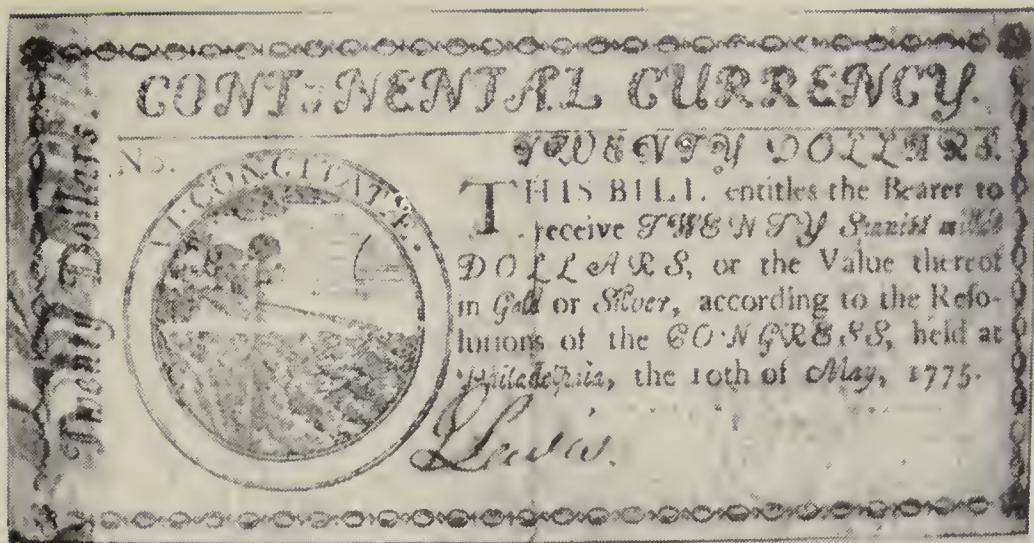 CONTINENTAL CURRENCY.
TWENTY DOLLARS.
No.
VI CONCITATÆ.
THIS BILL entitles the Bearer to
receive TWENTY Spanish milled
DOLLARS, or the Value thereof
in Gold or Silver, according to the Reſo-
lutions of the CONGRESS, held at
Philadelphia, the 10th of May, 1775.
Twenty Dollars.